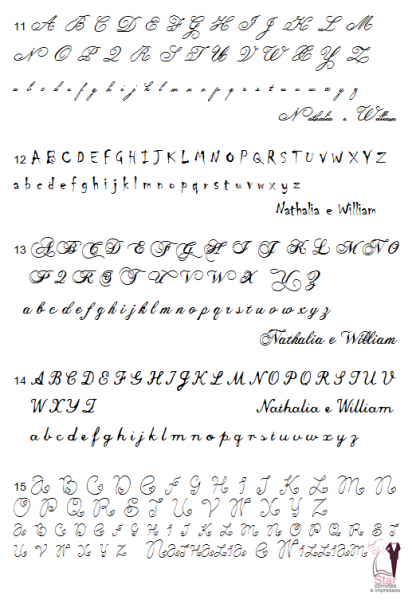 11 A B C D E F G H I J K L M
N O P Q R S T U V W X Y Z
a b c d e f g h i j k l m n o p q r s t u v w x y z
Nathalia e William
12 A B C D E F G H I J K L M N O P Q R S T U V W X Y Z
a b c d e f g h i j k l m n o p q r s t u v w x y z
Nathalia e William
13 A B C D E F G H I J K L M N O
P Q R S T U V W X Y Z
a b c d e f g h i j k l m n o p q r s t u v w x y z
Nathalia e William
14 A B C D E F G H I J K L M N O P Q R S T U V
W X Y Z Nathalia e William
a b c d e f g h i j k l m n o p q r s t u v w x y z
15 A B C D E F G H I J K L M N
O P Q R S T U V W X Y Z
A B C D E F G H I J K L M N O P Q R S T
U V W X Y Z Nathalia e William
Star
convites
e impressos